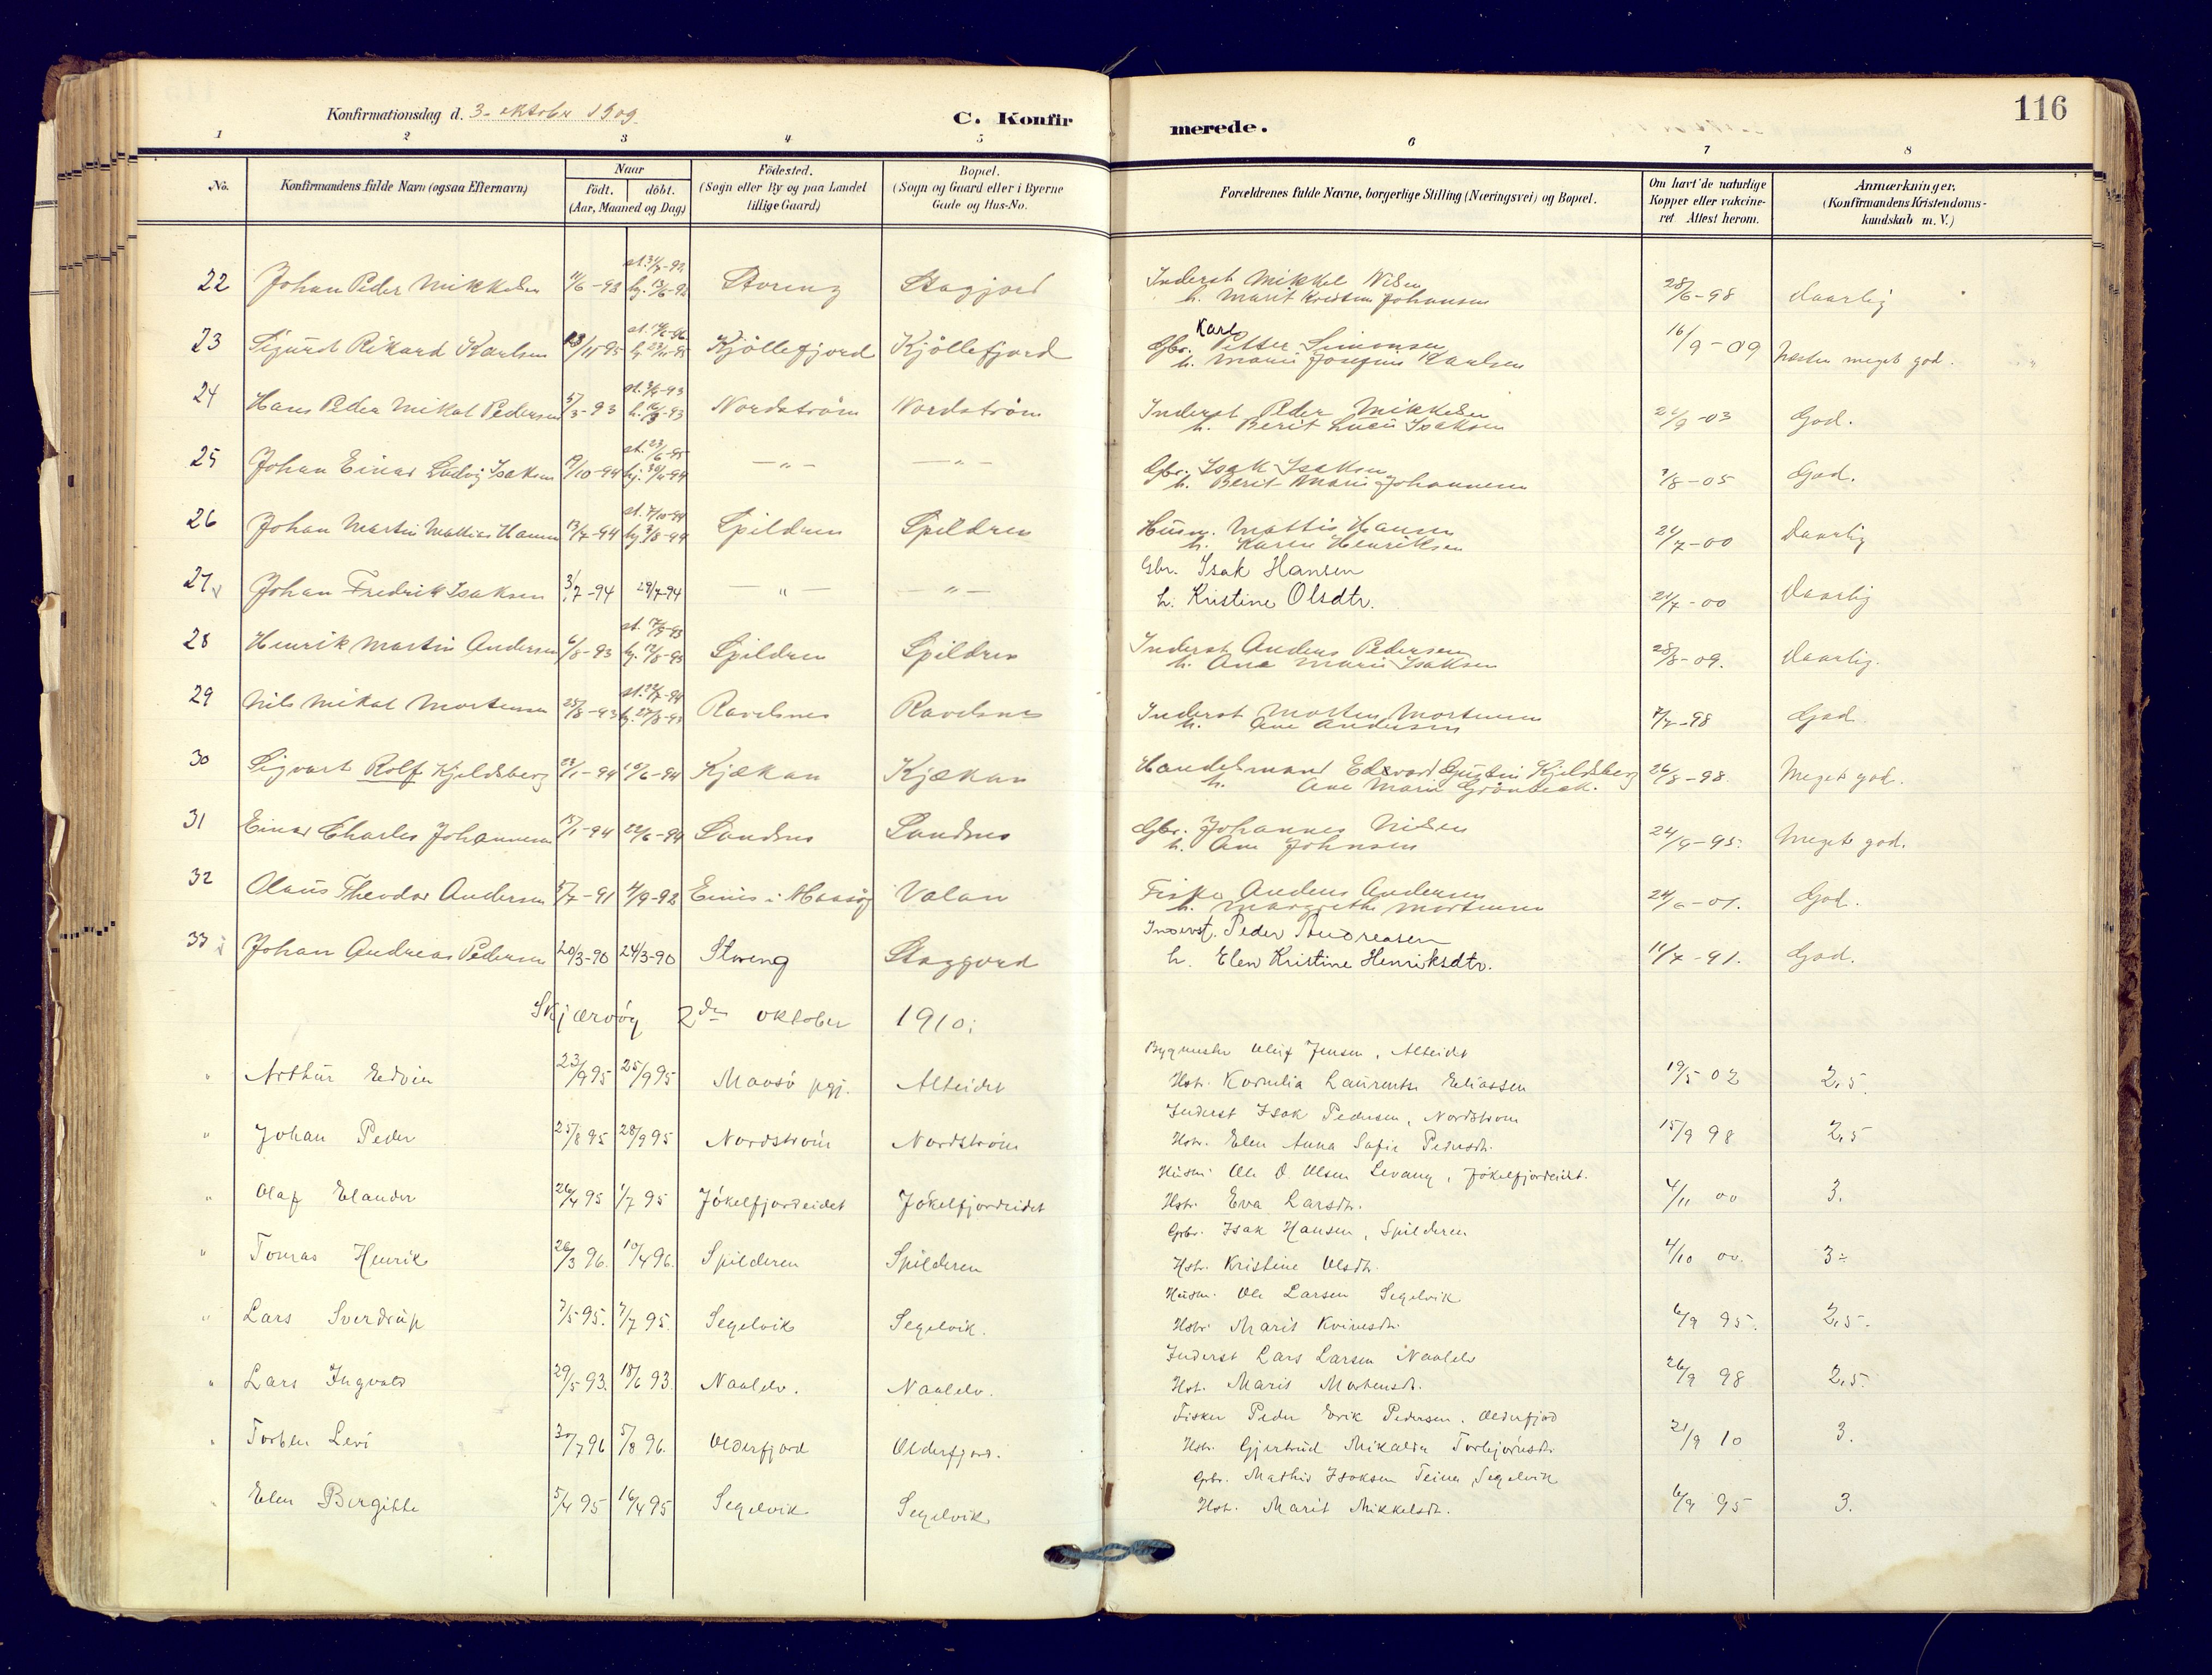 116
Konfirmationsdag d. 3. oktober 1909.
C. Konfirmerede.
1 2 3 4 5 6 7 8
No.
Konfirmandens fulde Navn (ogsaa Efternavn)
Naar
födt. döbt.
(Aar, Maaned og Dag)
Födested.
(Sogn eller By og paa Landet
tillige Gaard)
Bopæl.
(Sogn og Gaard eller i Byerne
Gade og Hus-No.
Forældrenes fulde Navne, borgerlige Stilling (Næringsvei) og Bopæl.
Om havt de naturlige
Kopper eller vakcine-
ret Attest herom.
Anmærkninger.
(Konfirmandens Kristendoms-
kundskab m. V.)
22 Johan Peder Mikkelsen 11/6-93 Storeng Stagfjord Inderst Mikkel Nilsen 28/6-98 Daarlig
h. Marit Kristine Johansen
23 Sigurd Rikard Karlsen /11-95 Kjöllefjord Kjöllefjord Gbr. Karl Petter Simonsen 16/9-09 Næsten meget god.
h. Marie Josefine Karlsen
24 Hans Peder Mikal Pedersen 5/3-93 Nordström Nordström Inderst Peder Mikkelsen /9-03 God.
h. Berit Lucie Isaksen
25 Johan Einar Ludvig Isaksen /10-94 -"- -"- Gbr. Isak Isaksen /8-05 God.
h. Berit Marie Johannesen
26 Johan Martin Mathias Hansen 13/7-94 Spildren Spildren Husm. Mattis Hansen 24/7-00 Daarlig
h. Karen Henriksen
27 Johan Fredrik Isaksen 3/7-94 29/7-94 -"- -"- Gbr. Isak Hansen 21/7-00 Daarlig
h. Kristine Olsdtr.
28 Henrik Martin Andersen 6/8-93 Spildren Spildren Inderst Anders Pedersen 28/8-09. Daarlig.
h. Ane Marie Isaksen
29 Nils Mikal Mortensen 25/8-93 Ravelsnes Ravelsnes Inderst Morten Mortensen 7/7-98 God.
h. Ane Andersen
30 Sigvart Rolf Kjeldsberg /1-94 /6-94 Kjækan Kjækan Handelsmand Edevard Gustin Kjeldsberg 26/8-98 Meget god.
h. Ane Marie Grönbeck.
31 Einar Charles Johannesen /1-94 22/6-94 Sandnes Sandnes Gbr. Johannes Nilsen 24/9-95. Meget god.
h. Ane Johnsen
32 Olaus Theodor Andersen 5/7-91 4/9-92 i Maasö Valan Fisker Anders Andersen 24/6-01. God.
h. Margrethe Mortensen
33 Johan Andreas Pedersen 20/3-90 24/3-90 Storeng Stagfjord Inderst. Peder Andreasen 11/7-91. God.
h. Elen Kristine Henriksdtr.
Skjærvöy 2den oktober 1910:
" Arthur Edvin 23/9 95 25/9 95 Maasö pgj. Alteidet Bygmester Oluf Jensen, Alteidet 19/5 02 2,5.
Hstr. Kornelia Laurentse Eliassen
" Johan Peder 25/8 95 28/9 95 Nordström Nordström Inderst Isak Pedersen, Nordstrøm 15/9 98 2,5
Hstr. Elen Anna Sofie Pedersdtr.
" Olaf Elander 26/4 95 1/7 95 Jökelfjordeidet Jökelfjordeidet Husm. Ole O Olsen Levang, Jökelfjordeidet. 4/11 00 3.
Hstr. Eva Larsdtr.
" Tomas Henrik 26/3 96. 10/4 96. Spilderen Spilderen Grbr. Isak Hansen, Spilderen 4/10 00. 3÷
Hstr. Kristine Olsdtr.
" Lars Sverdrup 7/5 95. 7/7 95. Segelvik Segelvik. Husm. Ole Larsen Segelvik 6/9 95. 2,5.
Hstr. Marit
" Lars Ingvald 29/5 93. 18/6 93. Naalelv. Naalelv. Inderst Lars Larsen Naalelv 26/9 98 2,5.
Hst. Marit Mortensdt.
" Torbler Levi 30/7 96 5/8 96. Olderfjord Olderfjord. Fisker Peder Erik Pedersen. Olderfjord 21/9 10 3.
Hstr. Gjertrud Mikaline Torbjörnsdtr.
" Elen Birgitte 5/4 95 16/4 95 Segelvik Segelvik Grbr. Mathis Isaksen Teina, Segelvik 6/9 95 3.
Hst. Marit Mikkelsdt.